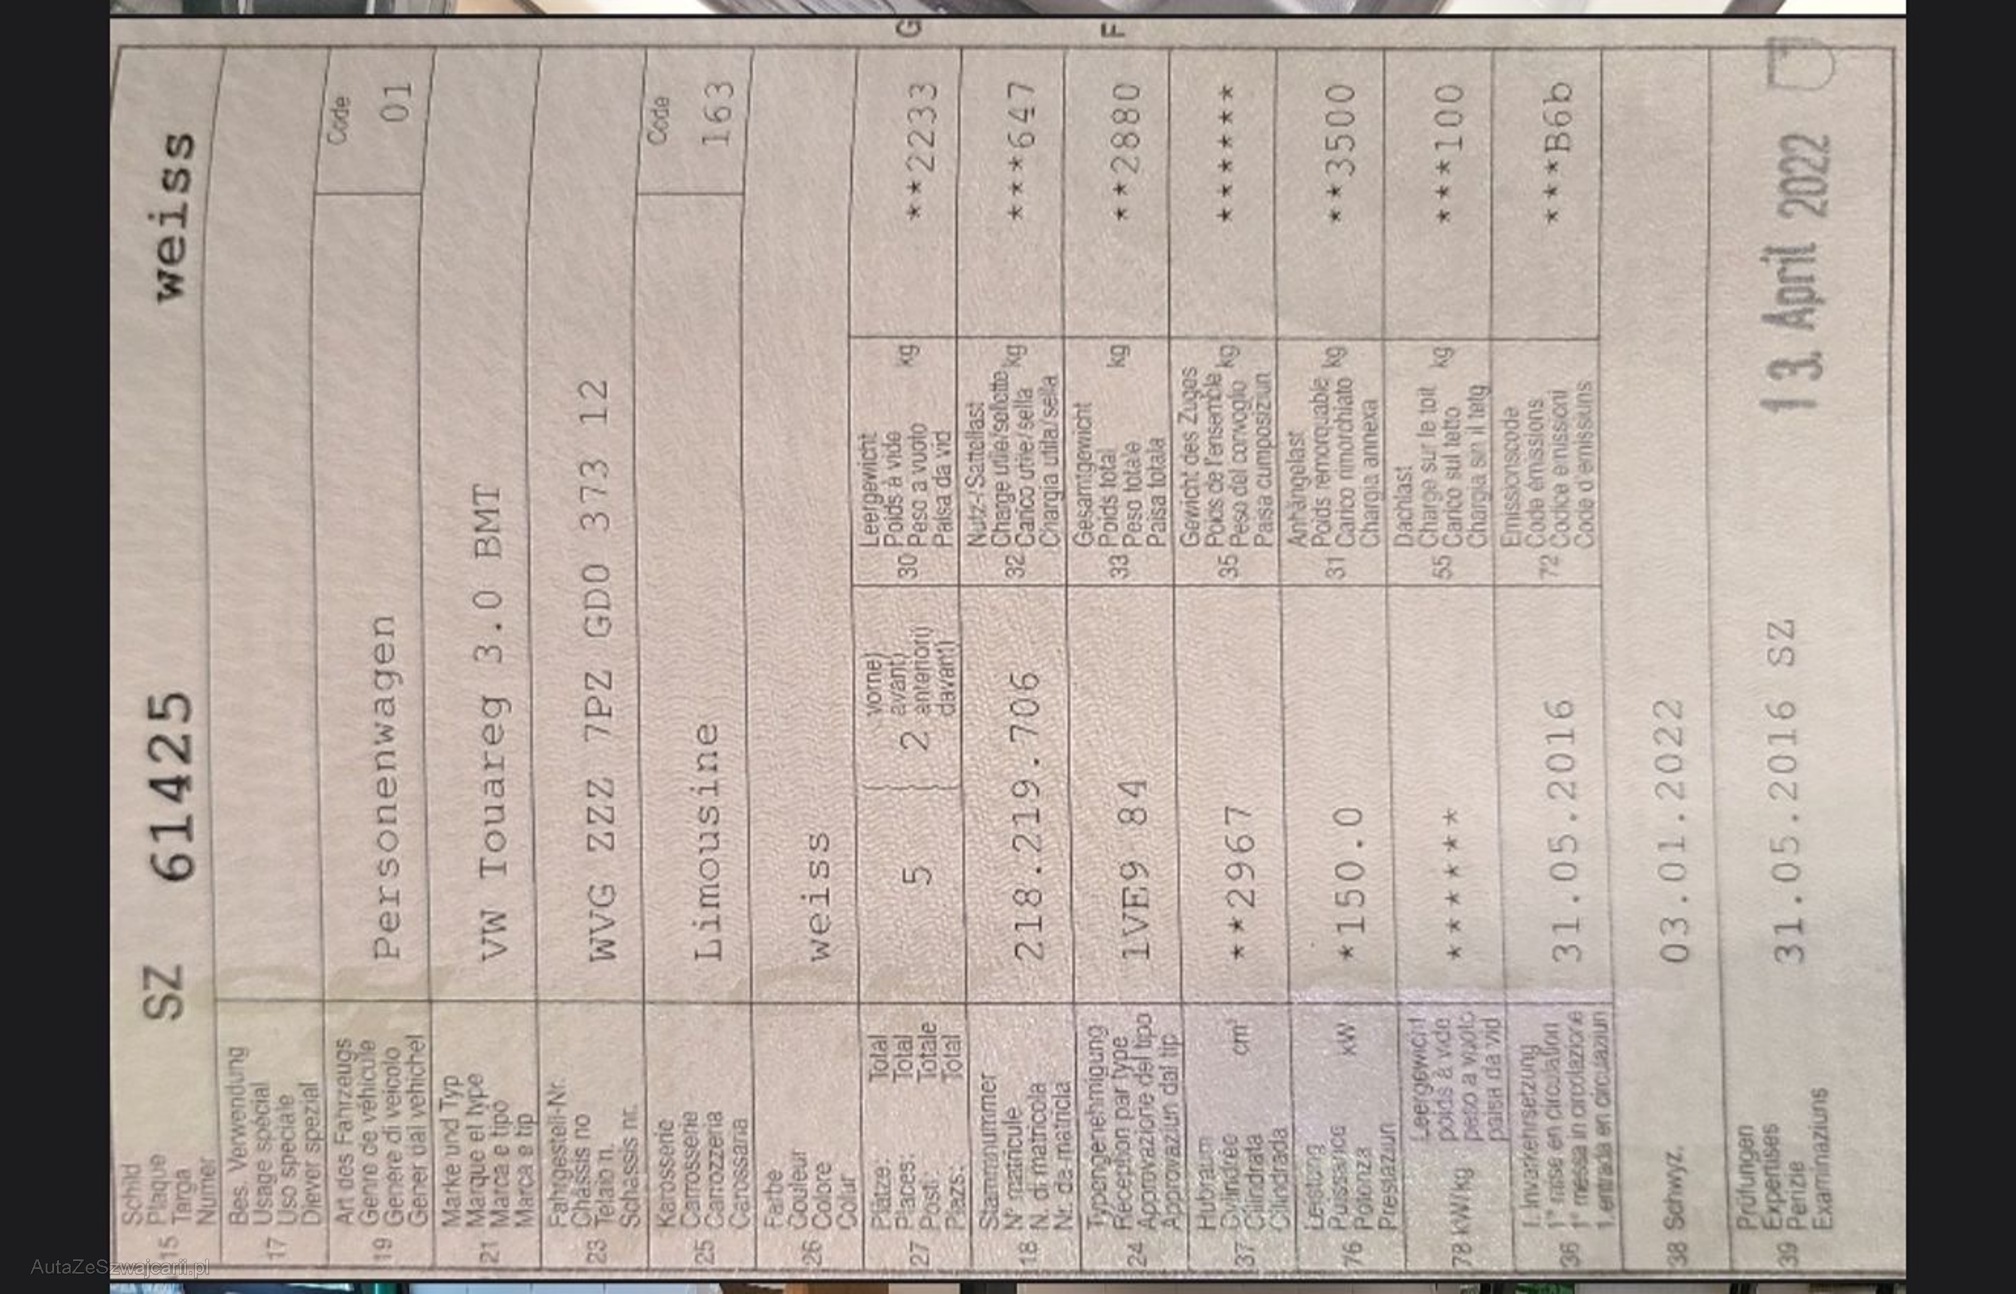 15 Schild
Plaque
Targa
Numer
SZ 61425 weiss
17 Bes. Verwendung
Usage spécial
Uso speciale
Diever spezial
19 Art des Fahrzeugs
Genre de véhicule
Genere di veicolo
Gener dal vehichel
Personenwagen
Code
01
21 Marke und Typ
Marque et type
Marca e tipo
Marca e tip
VW Touareg 3.0 BMT
23 Fahrgestell-Nr.
Châssis no
Telaio n.
Schassis nr.
WVG ZZZ 7PZ GD0 373 12
25 Karosserie
Carrosserie
Carrozzeria
Carossaria
Limousine
Code
163
26 Farbe
Couleur
Colore
Colur
weiss
27 Plätze: Total
Places: Total
Posti: Totale
Plazs: Total
5
2
vorne)
avant)
anteriori)
davant)
30 Leergewicht
Poids à vide
Peso a vuoto
Paisa da vid
kg
**2233
G
18 Stammnummer
N° matricule
N. di matricola
Nr. da matricla
218.219.706
32 Nutz-/Sattellast
Charge utile/sellette
Carico utile/sella
Chargia utila/sella
kg
***647
24 Typengenehmigung
Réception par type
Approvazione del tipo
Approvaziun dal tip
1VE9 84
33 Gesamtgewicht
Poids total
Peso totale
Paisa totala
kg
**2880
F
37 Hubraum
Cylindrée
Cilindrata
Cilindrada
cm³
**2967
35 Gewicht des Zuges
Poids de l'ensemble
Peso del convoglio
Paisa cumposiziun
kg
*******
76 Leistung
Puissance
Potenza
Prestaziun
kW
*150.0
31 Anhängelast
Poids remorquable
Carico rimorchiato
Chargia annexa
kg
**3500
78 kW/kg
Leergewicht
poids à vide
peso a vuoto
paisa da vid
*******
55 Dachlast
Charge sur le toit
Carico sul tetto
Chargia sin il tetg
kg
***100
36 1. Inverkehrsetzung
1re mise en circulation
1a messa in circolazione
1. entrada en circulaziun
31.05.2016
72 Emissionscode
Code émissions
Codice emissioni
Code d'emissiuns
***B6b
38 Schwyz,
03.01.2022
39 Prüfungen
Expertises
Perizie
Examinaziuns
31.05.2016 SZ
13. April 2022
AutaZeSzwajcarii.pl